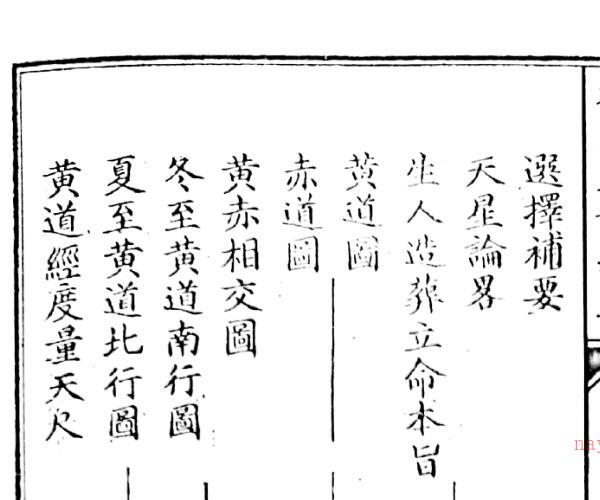 選擇補要
天星論畧
生人造葬立命本旨
黄道圖
赤道圖
黄赤相交圖
冬至黄道南行圖
夏至黄道北行圖
黄道經度量天尺